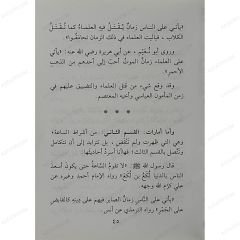 «يأتي على الناس زمانٌ يُقْتَلُ فيه العلماءُ كما تُقْتَلُ
الكلاب، فياليت العلماء في ذلك الزمان تحامَقُوا».
وروى أبو نُعَيْم، عن أبي هريرة رضي الله عنه: «يأتي
على العلماء زمانٌ الموتُ أحبُّ إلى أحدهم من الذهب
الأحمر».
وقد وقع شيء من قتل العلماء والتضييق عليهم في
زمن المأمون العباسي وأخيه المعتصم.
* * *
وأما أمارات: القسم الثاني: من أشراط الساعة؛
وهي التي ظهرت ولم تنقض، بل تتزايد إلى أن تتكامل
وتلي القسم الثالث؛ فهاأنا أسردُ أحاديثها:
قال رسول الله ﷺ: «لا تقومُ الساعةُ حتى يكون أسعدَ
الناسِ بالدنيا لُكَعُ بن لُكَع» رواه الإمام أحمد وغيره عن
علي كرّم الله وجهه.
«يأتي على الناس زمانٌ الصابر فيهم على دينه كالقابض
على الجَمْرِ» رواه الترمذي عن أنس.
٤٥